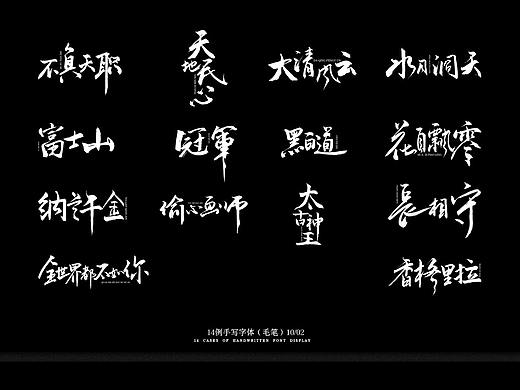 不負天职
天地民心
大清风云
水月洞天
富士山
冠軍
點道
花自飄零
纳许金
偷心画师
太古神王
長相守
全世界都不如你
香格里拉
14例手写字体（毛笔）10/02
14 CASES OF HANDWRITTEN FONT DISPLAY